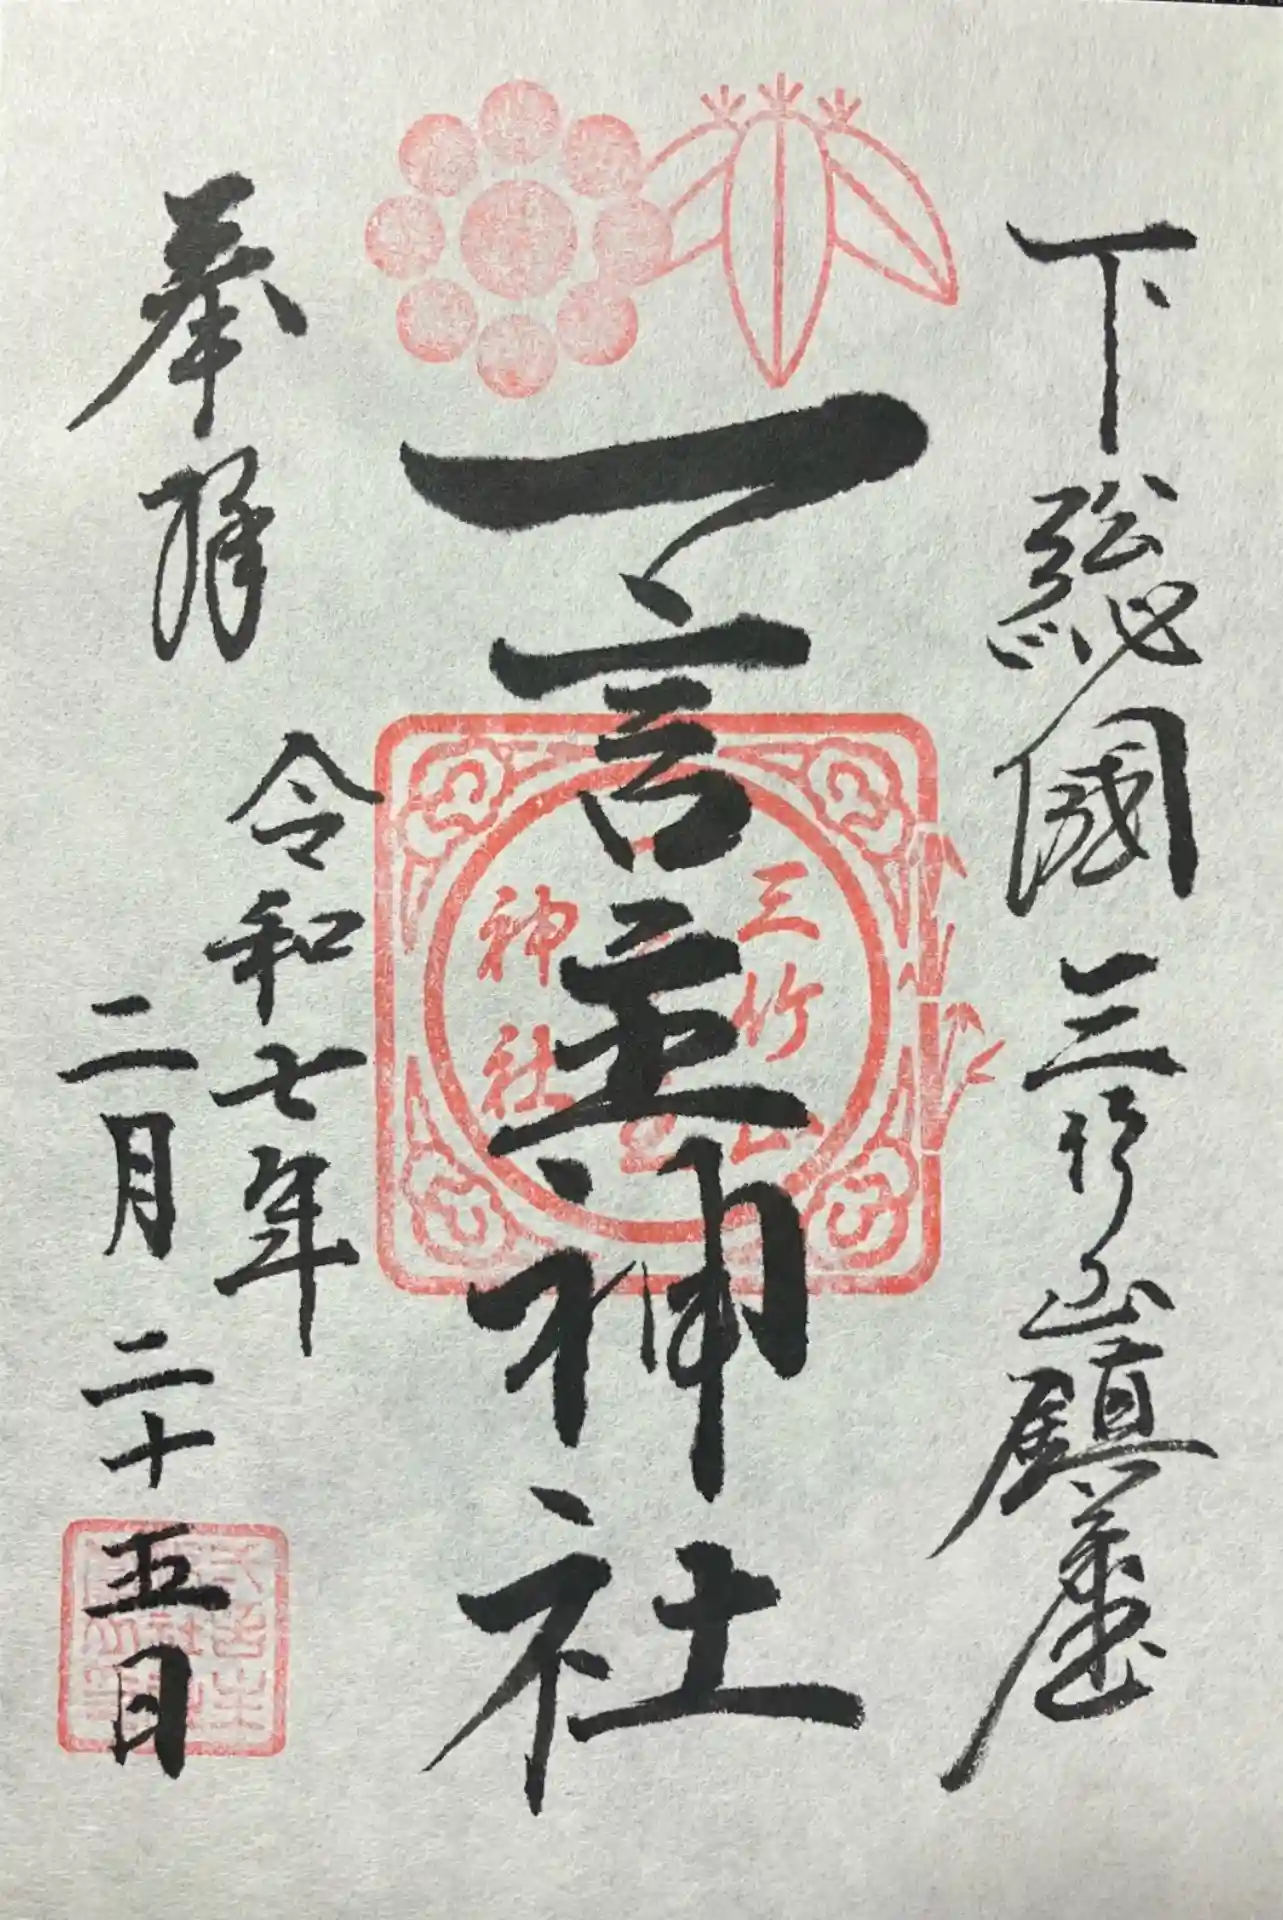 下総國三竹山鎮座
一言主神社
三竹山
神社
奉拝
令和七年
二月二十五日